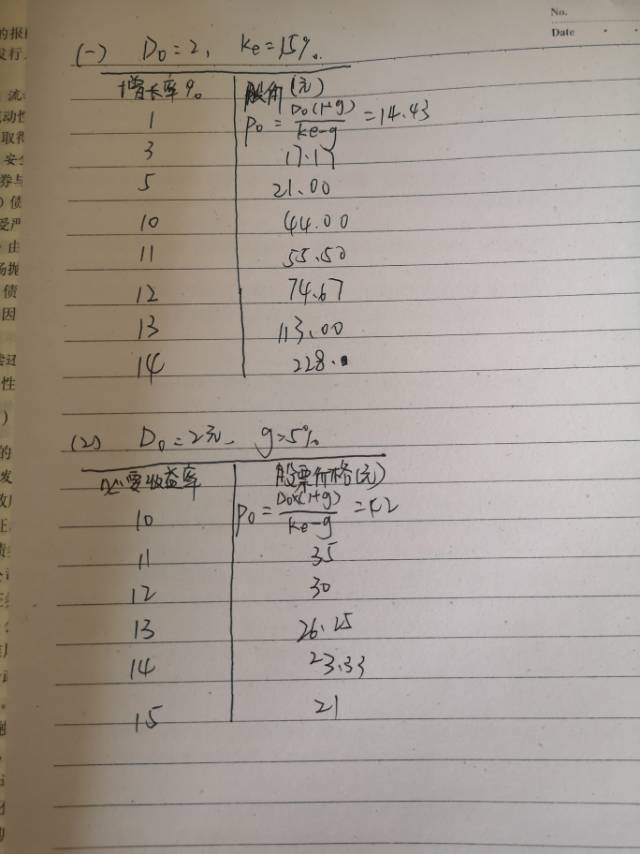 No.
Date
(一) D₀=2, Ke=15%.
增长率% 股价(元)
1 P₀=D₀(1+g)/Ke-g=14.43
3 17.17
5 21.00
10 44.00
11 55.50
12 74.67
13 113.00
14 228.
(2) D₀=2元、 g=5%
必要收益率 股票价格(元)
10 P₀=D₀×(1+g)/Ke-g=42
11 35
12 30
13 26.25
14 23.33
15 21